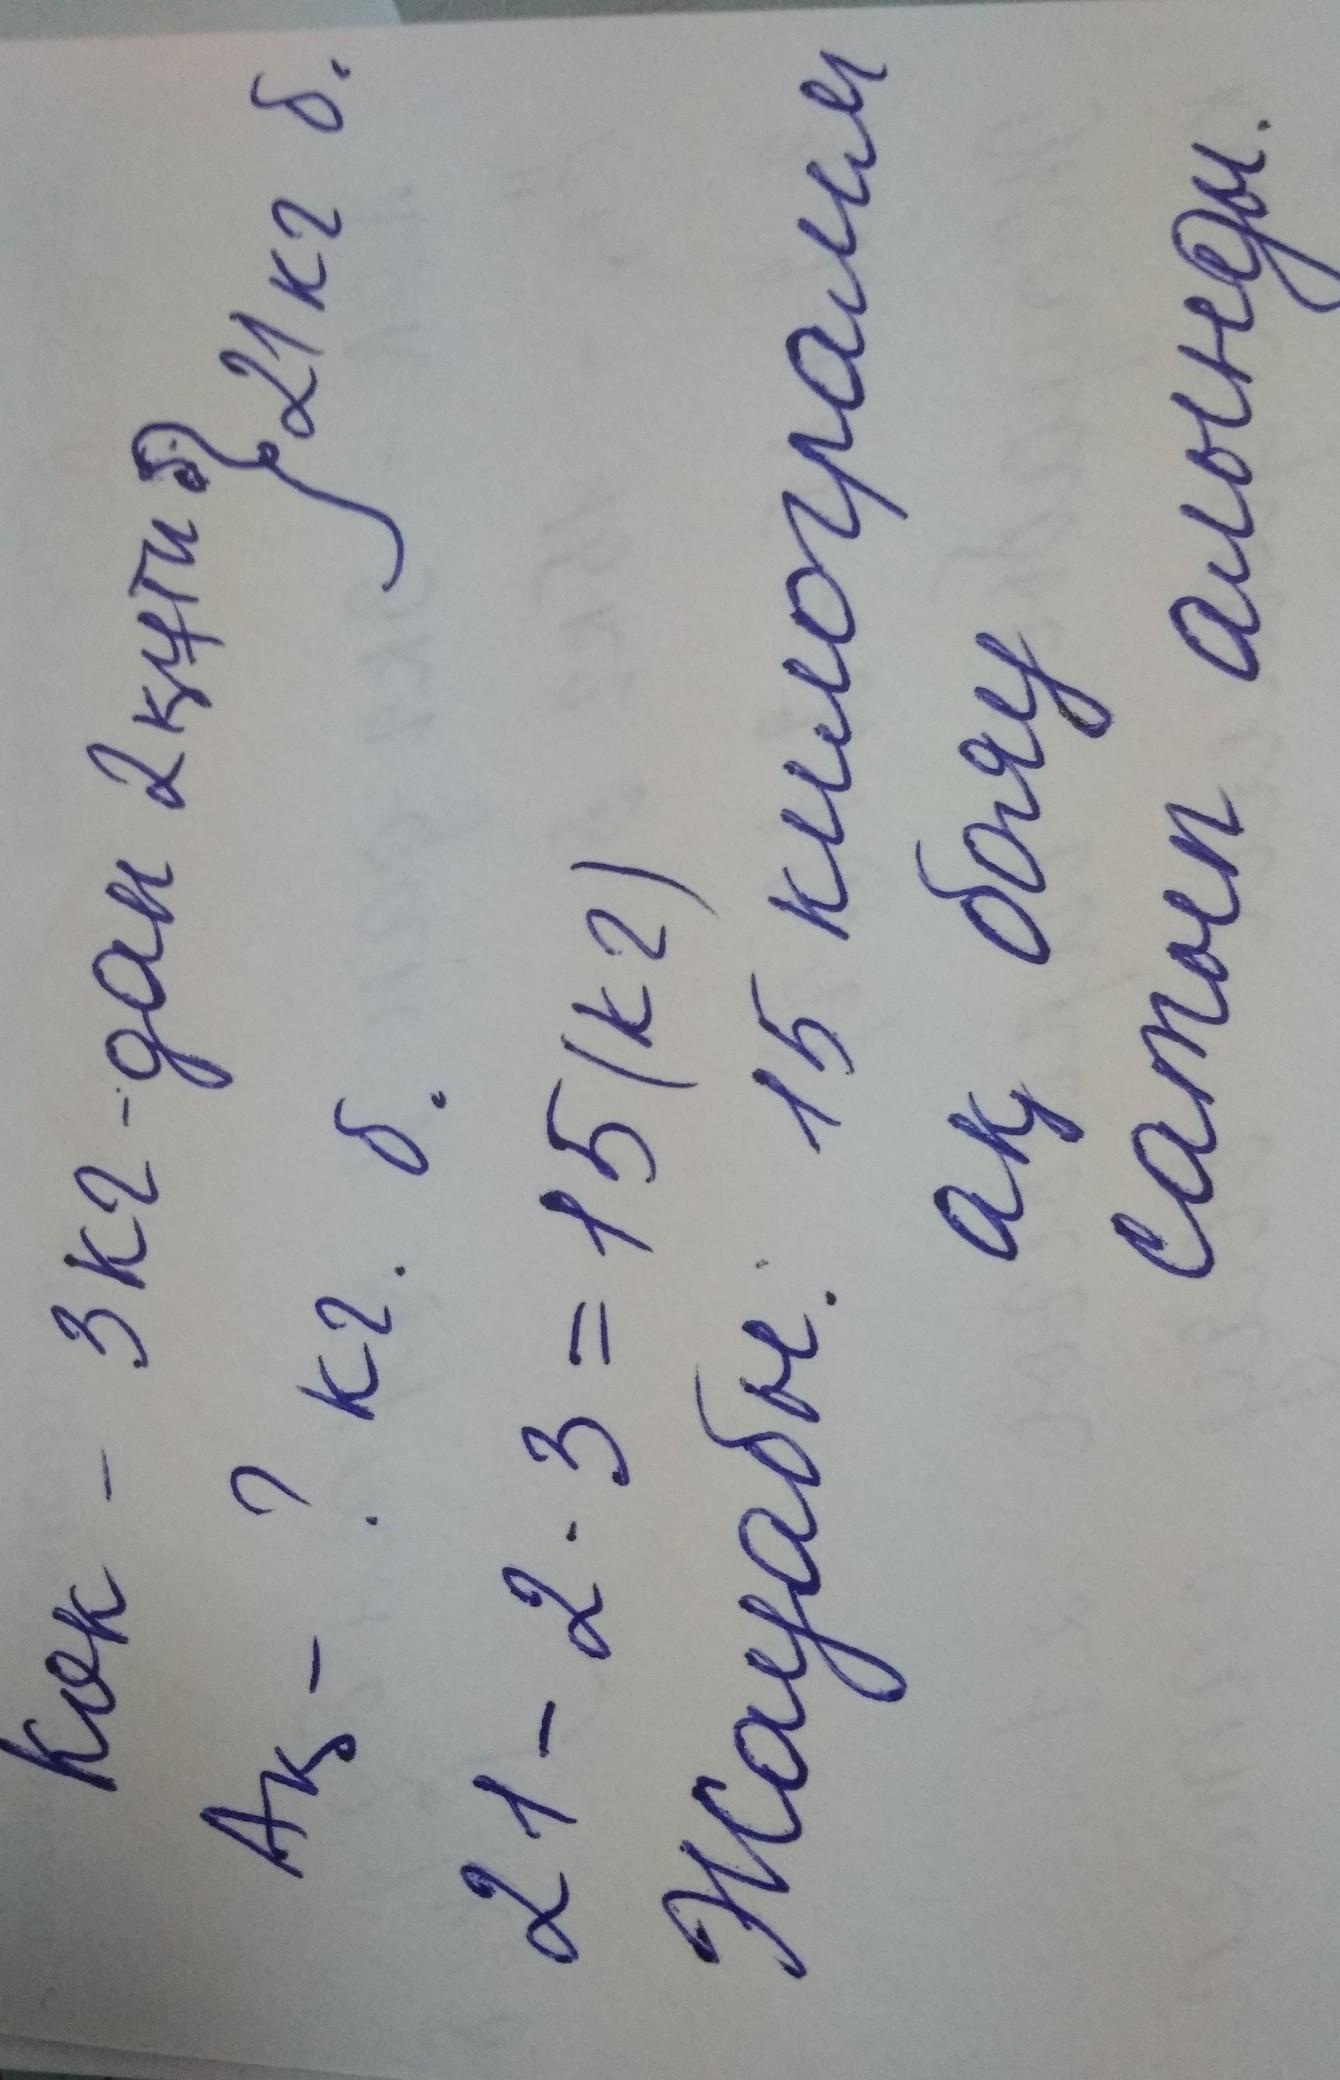 Көк - 3 кг-дан 2 қути б. } 21 кг б.
Ақ - ? кг. б.
21 - 2 · 3 = 15 (кг)
Жауабы. 15 килограмм
ақ бояу
сатып алынды.